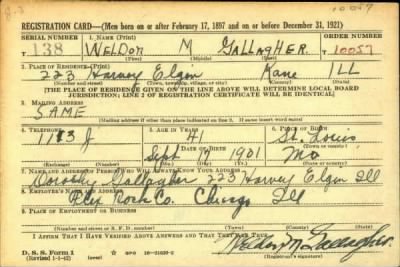 10057
REGISTRATION CARD—(Men born on or after February 17, 1897 and on or before December 31, 1921)
SERIAL NUMBER 1. NAME (Print) ORDER NUMBER
T 138 WELDON M GALLAGHER. 10057
(First) (Middle) (Last)
2. PLACE OF RESIDENCE (Print)
223 Harvey Elgin Kane ILL
(Number and street) (Town, township, village, or city) (County) (State)
[THE PLACE OF RESIDENCE GIVEN ON THE LINE ABOVE WILL DETERMINE LOCAL BOARD
JURISDICTION; LINE 2 OF REGISTRATION CERTIFICATE WILL BE IDENTICAL]
3. MAILING ADDRESS
SAME
[Mailing address if other than place indicated on line 2. If same insert word same]
4. TELEPHONE 5. AGE IN YEARS 6. PLACE OF BIRTH
1183 J 41 St. Louis
DATE OF BIRTH (Town or county)
Sept 1901 Mo
(Exchange) (Number) (Mo.) (Day) (Yr.) (State or country)
7. NAME AND ADDRESS OF PERSON WHO WILL ALWAYS KNOW YOUR ADDRESS
Dorothy Gallagher 223 Harvey Elgin Ill
8. EMPLOYER'S NAME AND ADDRESS
Co. Chicago Ill
9. PLACE OF EMPLOYMENT OR BUSINESS
(Number and street or R. F. D. number) (Town) (County) (State)
I AFFIRM THAT I HAVE VERIFIED ABOVE ANSWERS AND THAT THEY ARE TRUE.
D. S. S. Form 1
(Revised 1-1-42) (over) GPO 16-21630-2
Weldon M Gallagher.